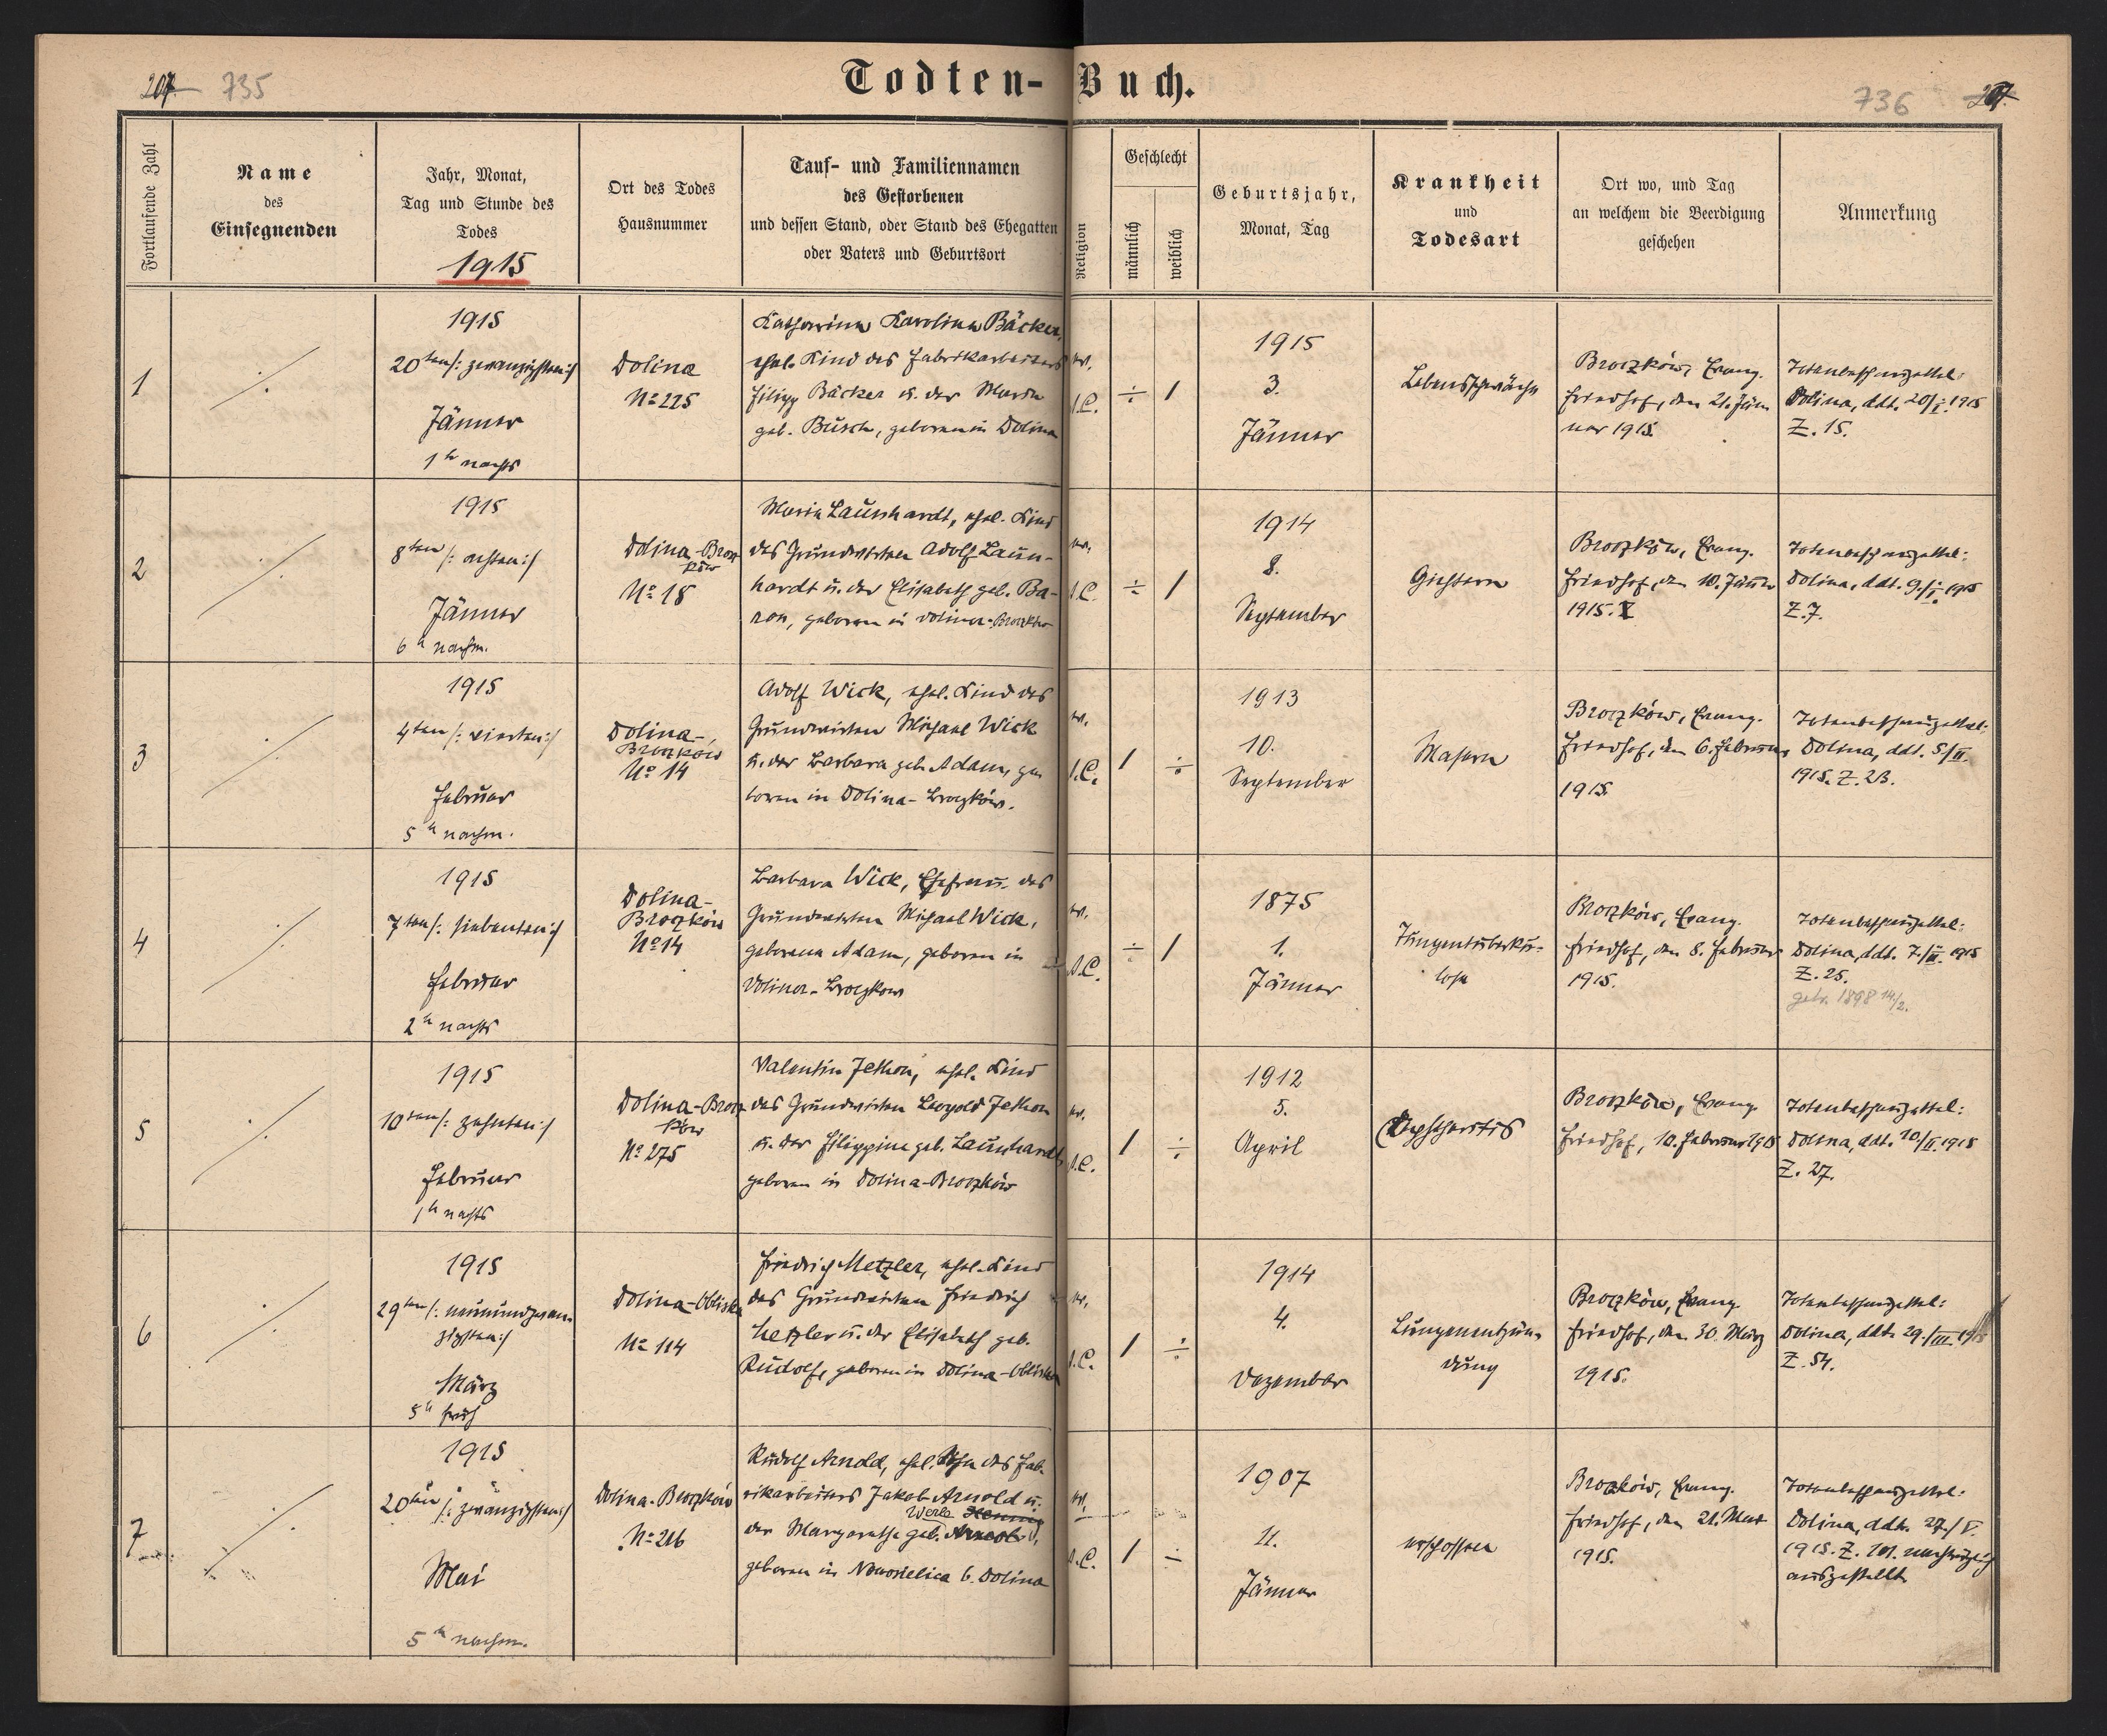 207 735
Todten-Buch.
736 207
Fortlaufende Zahl
Name
des
Einsegnenden
Jahr, Monat,
Tag und Stunde des
Todes
1915
Ort des Todes
Hausnummer
Tauf- und Familiennamen
des Gestorbenen
und dessen Stand, oder Stand des Ehegatten
oder Vaters und Geburtsort
Religion
Geschlecht
männlich
weiblich
Geburtsjahr,
Monat, Tag
Krankheit
und
Todesart
Ort wo, und Tag
an welchem die Beerdigung
geschehen
Anmerkung
1
1915
20ten /: zwanzigsten :/
Jänner
1 h nachts
Dolina
No 225
Katharina Karolina Bäcker,
ehel. Kind des Fabrikarbeiters
Filipp Bäcker u. der Maria
geb. Busch, geboren in Dolina
ev.
A.C.
÷ 1
1915
3.
Jänner
Lebensschwäche
Broczków, Evang.
Friedhof, den 21. Jän
ner 1915.
Totenbeschauzettel:
Dolina, ddt. 20/I. 1915
Z. 15.
2
1915
8ten /: achten :/
Jänner
6 h nachm.
Dolina-Brocz
ków
No 18
Maria Launhardt, ehel. Kind
des Grundwirten Adolf Laun-
hardt u. der Elisabeth geb. Ba-
ron, geboren in Dolina-Broczków
ev.
A.C.
÷ 1
1914
8.
September
Gichtern
Broczków, Evang.
Friedhof, den 10. Jänner
1915.
Totenbeschauzettel:
Dolina, ddt. 9./I. 1915
Z. 7.
3
1915
4ten /: vierten :/
Februar
5 h nachm.
Dolina-
Broczków
No 14
Adolf Wick, ehel. Kind des
Grundwirten Michael Wick
u. der Barbara geb. Adam, ge
boren in Dolina-Broczków.
ev.
A.C.
1 ÷
1913
10.
September
Masern
Broczków, Evang.
Friedhof, den 6. Februar
1915.
Totenbeschauzettel:
Dolina, ddt. 5/II.
1915. Z. 23.
4
1915
7ten /: siebenten :/
Februar
2 h nachts
Dolina-
Broczków
No 14
Barbara Wick, Ehefrau des
Grundwirten Michael Wick,
geborene Adam, geboren in
Dolina-Broczkow
ev.
A.C.
÷ 1
1875
1.
Jänner
Lungentuberku-
lose
Broczków, Evang.
Friedhof, den 8. Februar
1915.
Totenbeschauzettel:
Dolina, ddt. 7./II. 1915
Z. 25.
getr. 1898 14/2.
5
1915
10ten /: zehnten :/
Februar
1 h nachts
Dolina-Brocz
ków
No 275
Valentin Jethon, ehel. Kind
des Grundwirten Leopold Jethon
u. der Filippine geb. Launhardt
geboren in Dolina-Broczków
ev.
A.C.
1 ÷
1912
5.
April
Dyphteritis
Broczków, Evang.
Friedhof, 10. Februar 1915
Totenbeschauzettel:
Dolina, ddt. 10/II. 1915
Z. 27.
6
1915
29ten /: neunundzwan-
zigsten :/
März
5 h früh
Dolina-Obliska
No 114
Friedrich Metzler, ehel. Kind
des Grundwirten Friedrich
Metzler u. der Elisabeth geb.
Rudolf, geboren in Dolina-Obliska
ev.
A.C.
1 ÷
1914
4.
Dezember
Lungenentzün-
dung
Broczków, Evang.
Friedhof, den 30. März
1915.
Totenbeschauzettel:
Dolina, ddt. 29./III. 1915
Z. 54.
7
1915
20ten /: zwanzigsten :/
Mai
5 h nachm.
Dolina-Broczków
No 216
Rudolf Arnold, ehel. Sohn des Fab-
rikarbeiters Jakob Arnold u.
Werle
der Margarethe geb.
geboren in Nowosielica b. Dolina
ev.
A.C.
1 ÷
1907
11.
Jänner
erschossen
Broczków, Evang.
Friedhof, den 21. Mai
1915.
Totenbeschauzettel:
Dolina, ddt. 27./V.
1915. Z. 101. nachträglich
ausgestellt